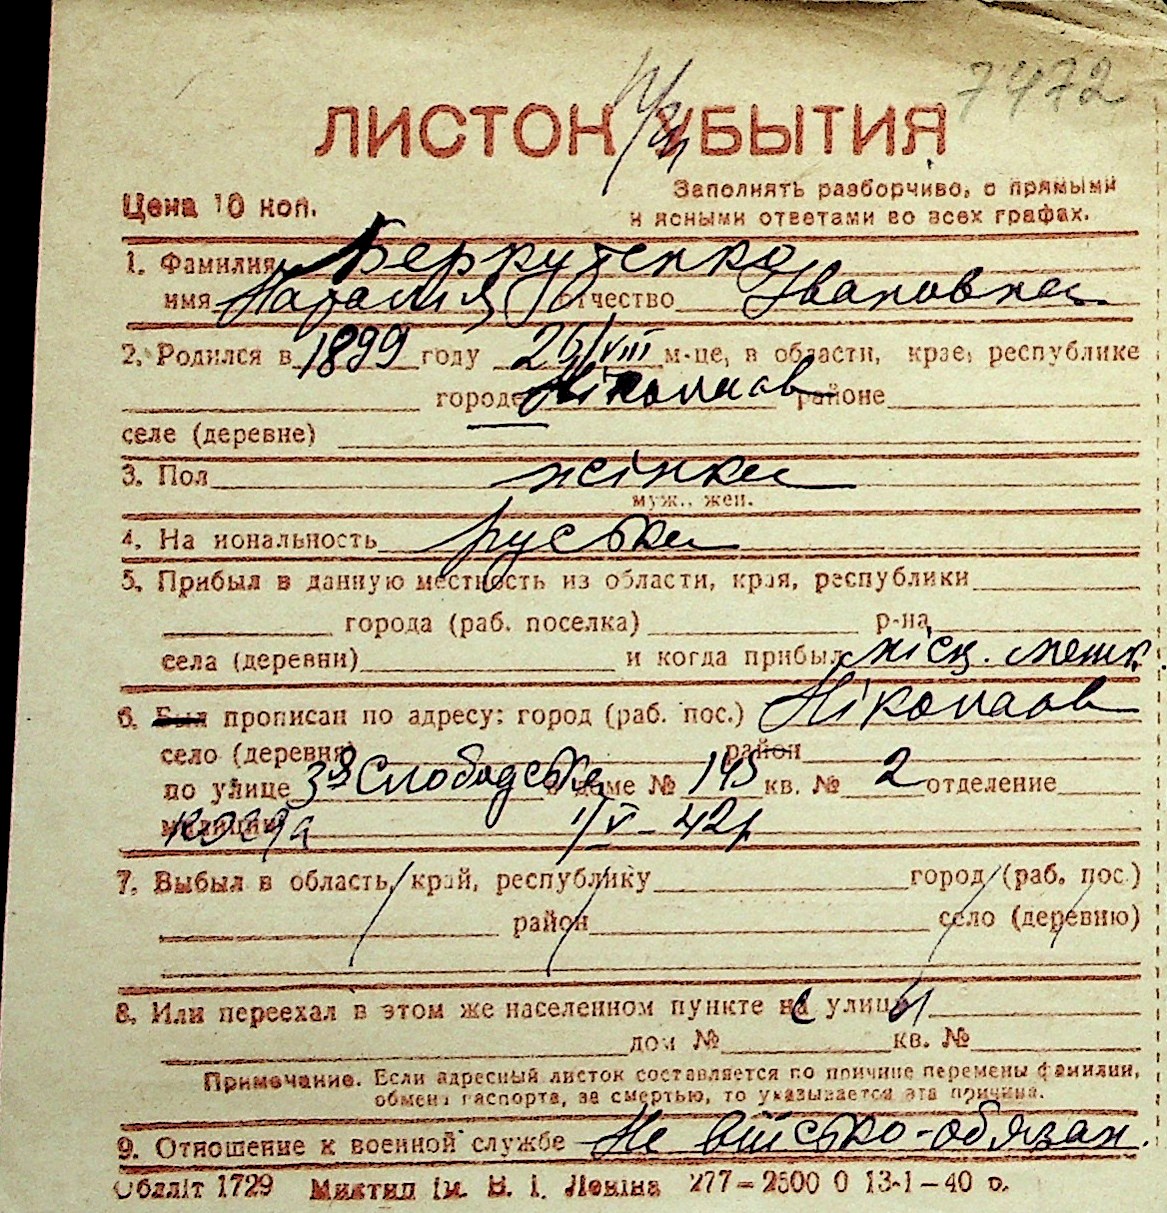 7472
ЛИСТОК УБЫТИЯ
Цена 10 коп.
Заполнять разборчиво, с прямыми
и ясными ответами во всех графах.
1. Фамилия Беркутенко
имя Наталія отчество Івановна
2. Родился в 1899 году 26/VIII м-це, в области, крае, республике
городе Ніколаєв районе
селе (деревне)
3. Пол жінка
муж., жен.
4. На иональность руська
5. Прибыл в данную местность из области, края, республики
города (раб. поселка) р-на
села (деревни) и когда прибыл місц. мешк.
6. Был прописан по адресу: город (раб. пос.) Ніколаєв
село (деревня) район
по улице 3я Слободська доме № 145 кв. № 2 отделение
милиции 1/V-42р
7. Выбыл в область, край, республику город (раб. пос.)
район село (деревню)
8. Или переехал в этом же населенном пункте на улицу
дом № кв. №
Примечание. Если адресный листок составляется по причине перемены фамилии,
обмена паспорта, за смертью, то указывается эта причина.
9. Отношение к военной службе Не військо-обязан.
Обліт 1729 Миктип ім. В. І. Леніна 277-2500 0 13-1-40 р.